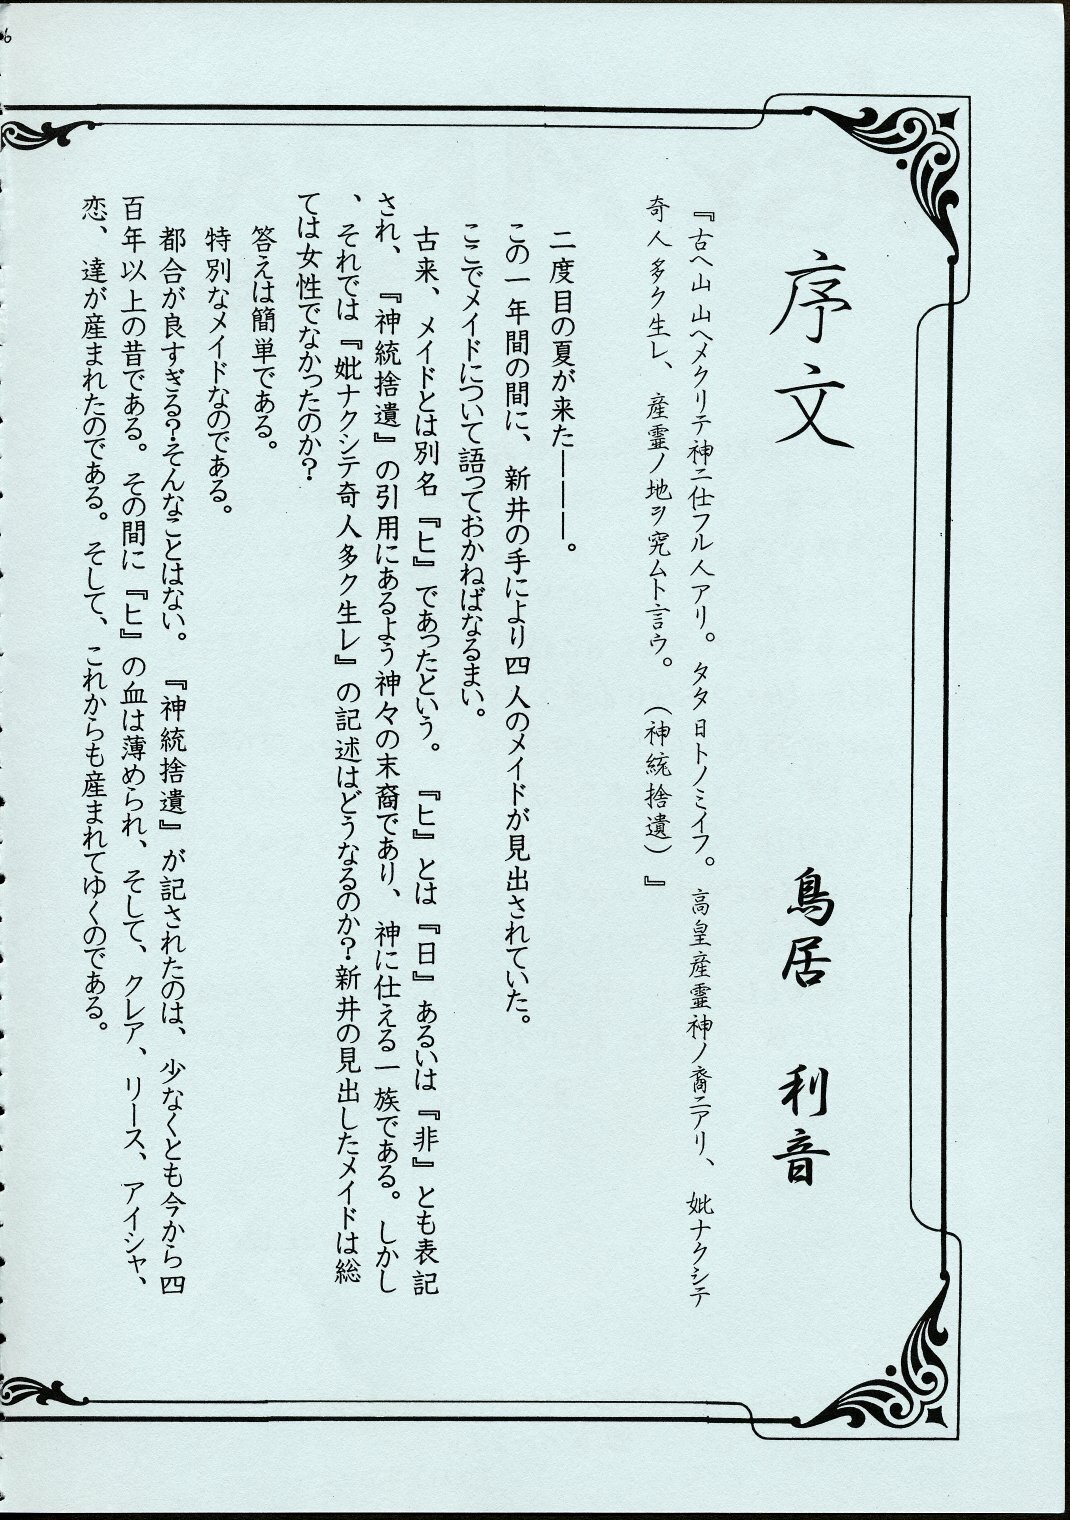 序文
鳥居 利音
『古ヘ山山ヘメクリテ神ニ仕フル人アリ。タタ日トノミイフ。高皇産霊神ノ裔ニアリ、妣ナクシテ
奇人多ク生レ、産霊ノ地ヲ究ムト言ウ。(神統捨遺)』
二度目の夏が来た―――。
この一年間の間に、新井の手により四人のメイドが見出されていた。
ここでメイドについて語っておかねばなるまい。
古来、メイドとは別名『ヒ』であったという。『ヒ』とは『日』あるいは『非』とも表記
され、『神統捨遺』の引用にあるよう神々の末裔であり、神に仕える一族である。しかし
、それでは『妣ナクシテ奇人多ク生レ』の記述はどうなるのか?新井の見出したメイドは総
ては女性でなかったのか?
答えは簡単である。
特別なメイドなのである。
都合が良すぎる?そんなことはない。『神統捨遺』が記されたのは、少なくとも今から四
百年以上の昔である。その間に『ヒ』の血は薄められ、そして、クレア、リース、アイシャ、
恋、達が産まれたのである。そして、これからも産まれてゆくのである。
6